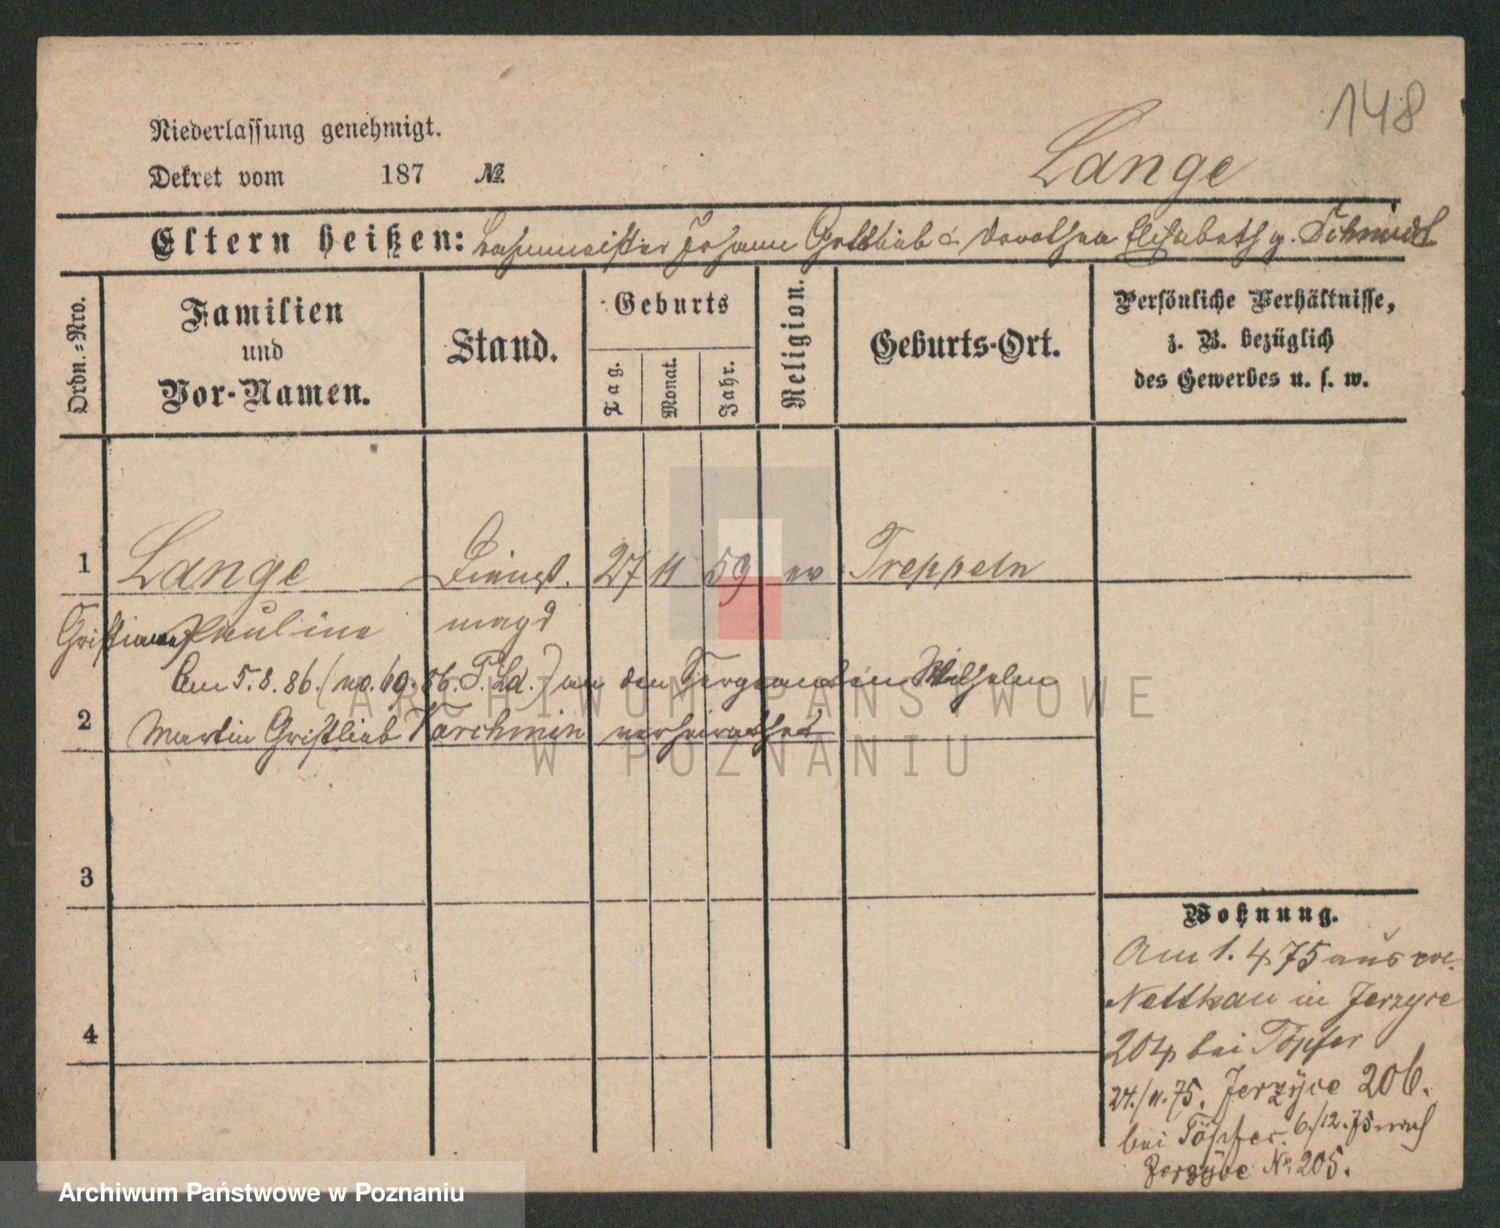 148
Niederlassung genehmigt.
Lange
Dekret vom 187 №.
Eltern heißen: Bahnmeister Johann Gottlieb & Dorothea Elisabeth g. Schmidt
Ordn.-Nro.
Familien und Vor-Namen.
Stand.
Geburts
Tag.
Monat.
Jahr.
Religion.
Geburts-Ort.
Persönliche Verhältnisse,
z. B. bezüglich
des Gewerbes u. s. w.
1 Lange Dienst. 27 11 59 ev Treppeln
Christiane Pauline magd
Am 5.8.86. (no. 69. 86. P. Ld.) an den Sergeanten Wilhelm
2 Martin Christlieb Karchmin verheirathet
3
4
Wohnung.
Am 1. 4 75 aus
Nettkau in Jerzyce
204 bei Töpfer
24./11.75. Jerzyce 206.
bei Töpfer. 6./12.75 nach
Jerzyce № 205.
ARCHIWUM PAŃSTWOWE
W POZNANIU
Archiwum Państwowe w Poznaniu